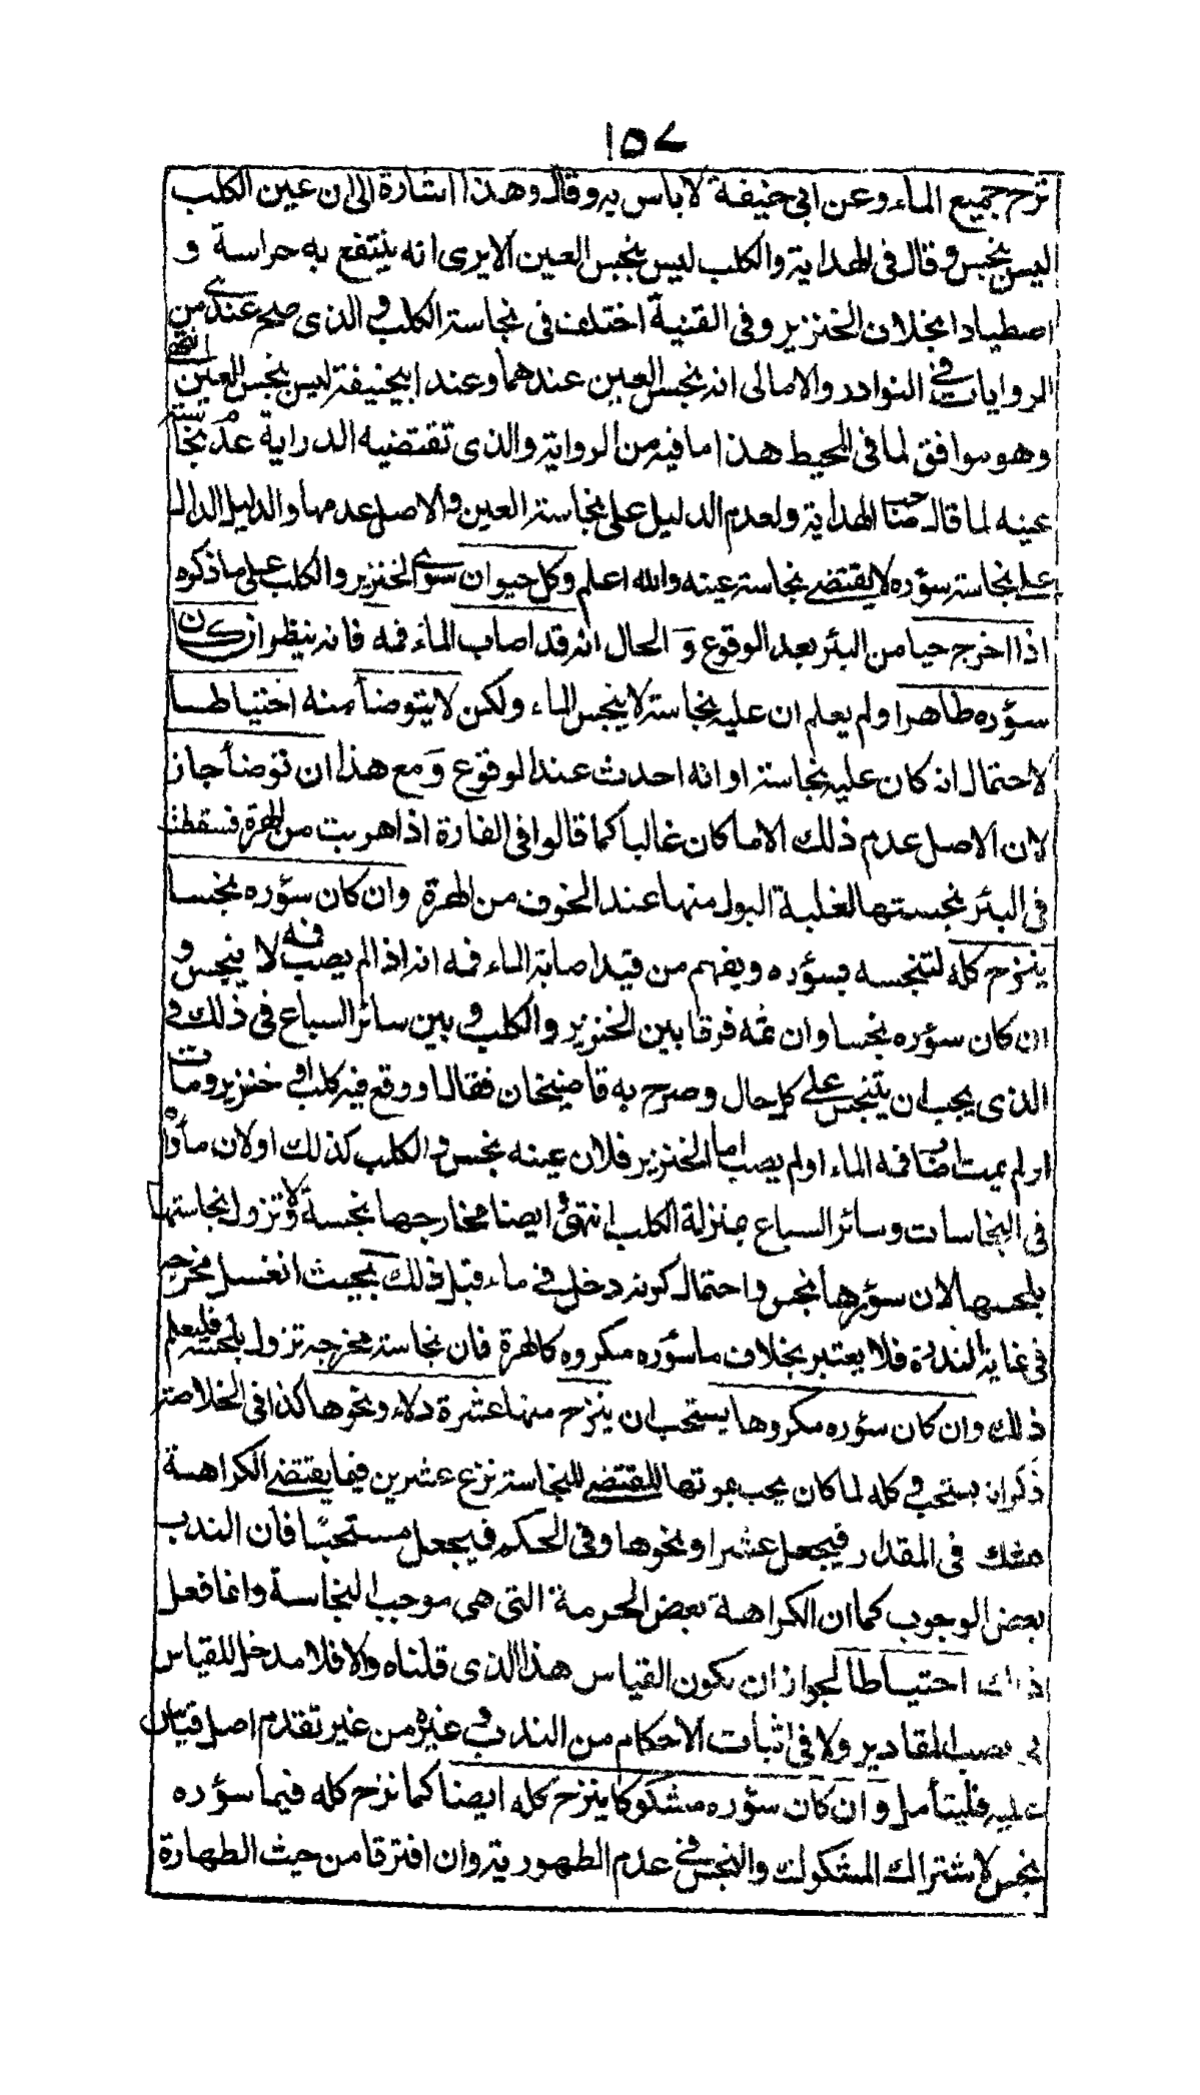 ١٥٧
نزح جميع الماء وعن ابى حنيفة لا باس به وقال وهذا اشارة الى ان عين الكلب
ليس بنجس وقال فى الهداية والكلب ليس بنجس العين الا يرى انه ينتفع به حراسة و
اصطيادا بخلاف الخنزير وفى القنية اختلف فى نجاسة الكلب والذى صح عندى من
الروايات فى النوادر والامالى انه نجس العين عندهما وعند ابيحنيفة ليس بنجس العين انتهى
وهو موافق لما فى المحيط هذا ما فيه من الرواية والذى تقتضيه الدراية عدم نجاسة
عينه لما قال صاحب الهداية ولعدم الدليل على نجاسة العين والاصل عدمها والدليل الدال
على نجاسة سؤره لا يقتضى نجاسة عينه والله اعلم وكل حيوان سوى الخنزير والكلب على ما ذكره
اذا اخرج حيا من البئر بعد الوقوع و الحال انه قد اصاب الماء فمه فانه ينظر ان كان
سؤره طاهرا ولم يعلم ان عليه نجاسة لا ينجس الماء ولكن لا يتوضأ منه احتياطا
لاحتمال انه كان عليه نجاسة او انه احدث عند الوقوع ومع هذا ان توضأ جاز
لان الاصل عدم ذلك الا ما كان غالبا كما قالوا فى الفارة اذا هربت من الهرة فسقطت
فى البئر نجستها لغلبة البول منها عند الخوف من الهرة وان كان سؤره نجسا
ينزح كله لتنجسه بسؤره ويفهم من قيد اصابة الماء فمه انه اذا لم يصب فمه لا ينجس و
ان كان سؤره نجسا وان ثمه فرقا بين الخنزير والكلب و بين سائر السباع فى ذلك و
الذى يجب ان يتنجس على كل حال وصرح به قاضيخان فقال او وقع فيه كلب او خنزير ومات
او لم يمت اصاب فمه الماء او لم يصب اما الخنزير فلان عينه نجس و الكلب كذلك او لان مأواه
فى النجاسات وسائر السباع بمنزلة الكلب انتهى وايضا مخارجها نجسة ولا تزول نجاستها
بلحسها لان سؤرها نجس واحتمال كونه دخل فى ماء قبل ذلك بحيث انغسل مخرجه
فى غاية الندرة فلا يعتبر بخلاف ما سؤره مكروه كالهرة فان نجاسة مخرجه تزول بلحسه فليعلم
ذلك وان كان سؤره مكروها يستحب ان ينزح منها عشرة دلاء ونحوها كذا فى الخلاصة
ذكر انه يستحب و كله لما كان يجب بموتها المقتضى للنجاسة نزع عشرين فيما يقتضى الكراهة
فى المقدار فيجعل عشرا ونحوها وفى الحكم فيجعل مستحبا فان الندب
بعض الوجوب كما ان الكراهة بعض الحرمة التى هى موجب النجاسة وانما فعل
ذلك احتياطا لجواز ان يكون القياس هذا الذى قلناه والا فلا مدخل للقياس
فى نصب المقادير ولا فى اثبات الاحكام من الندب و غيره من غير تقدم اصل قياس
عليه فليتأمل و ان كان سؤره مشكوكا ينزح كله ايضا كما نزح كله فيما سؤره
نجس لاشتراك المشكوك والنجس فى عدم الطهورية وان افترقا من حيث الطهارة